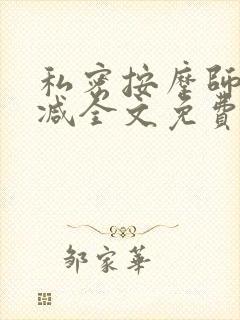 私密按摩師
减全文免費
邹家華